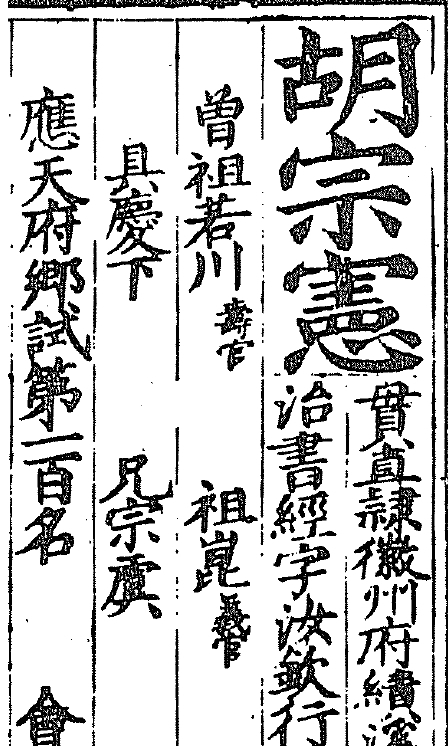 胡宗憲
貫直隸徽州府績溪
治書經字汝欽行
曾祖若川壽官
祖崑義官
具慶下
兄宗虞
應天府鄉試第一百名
會